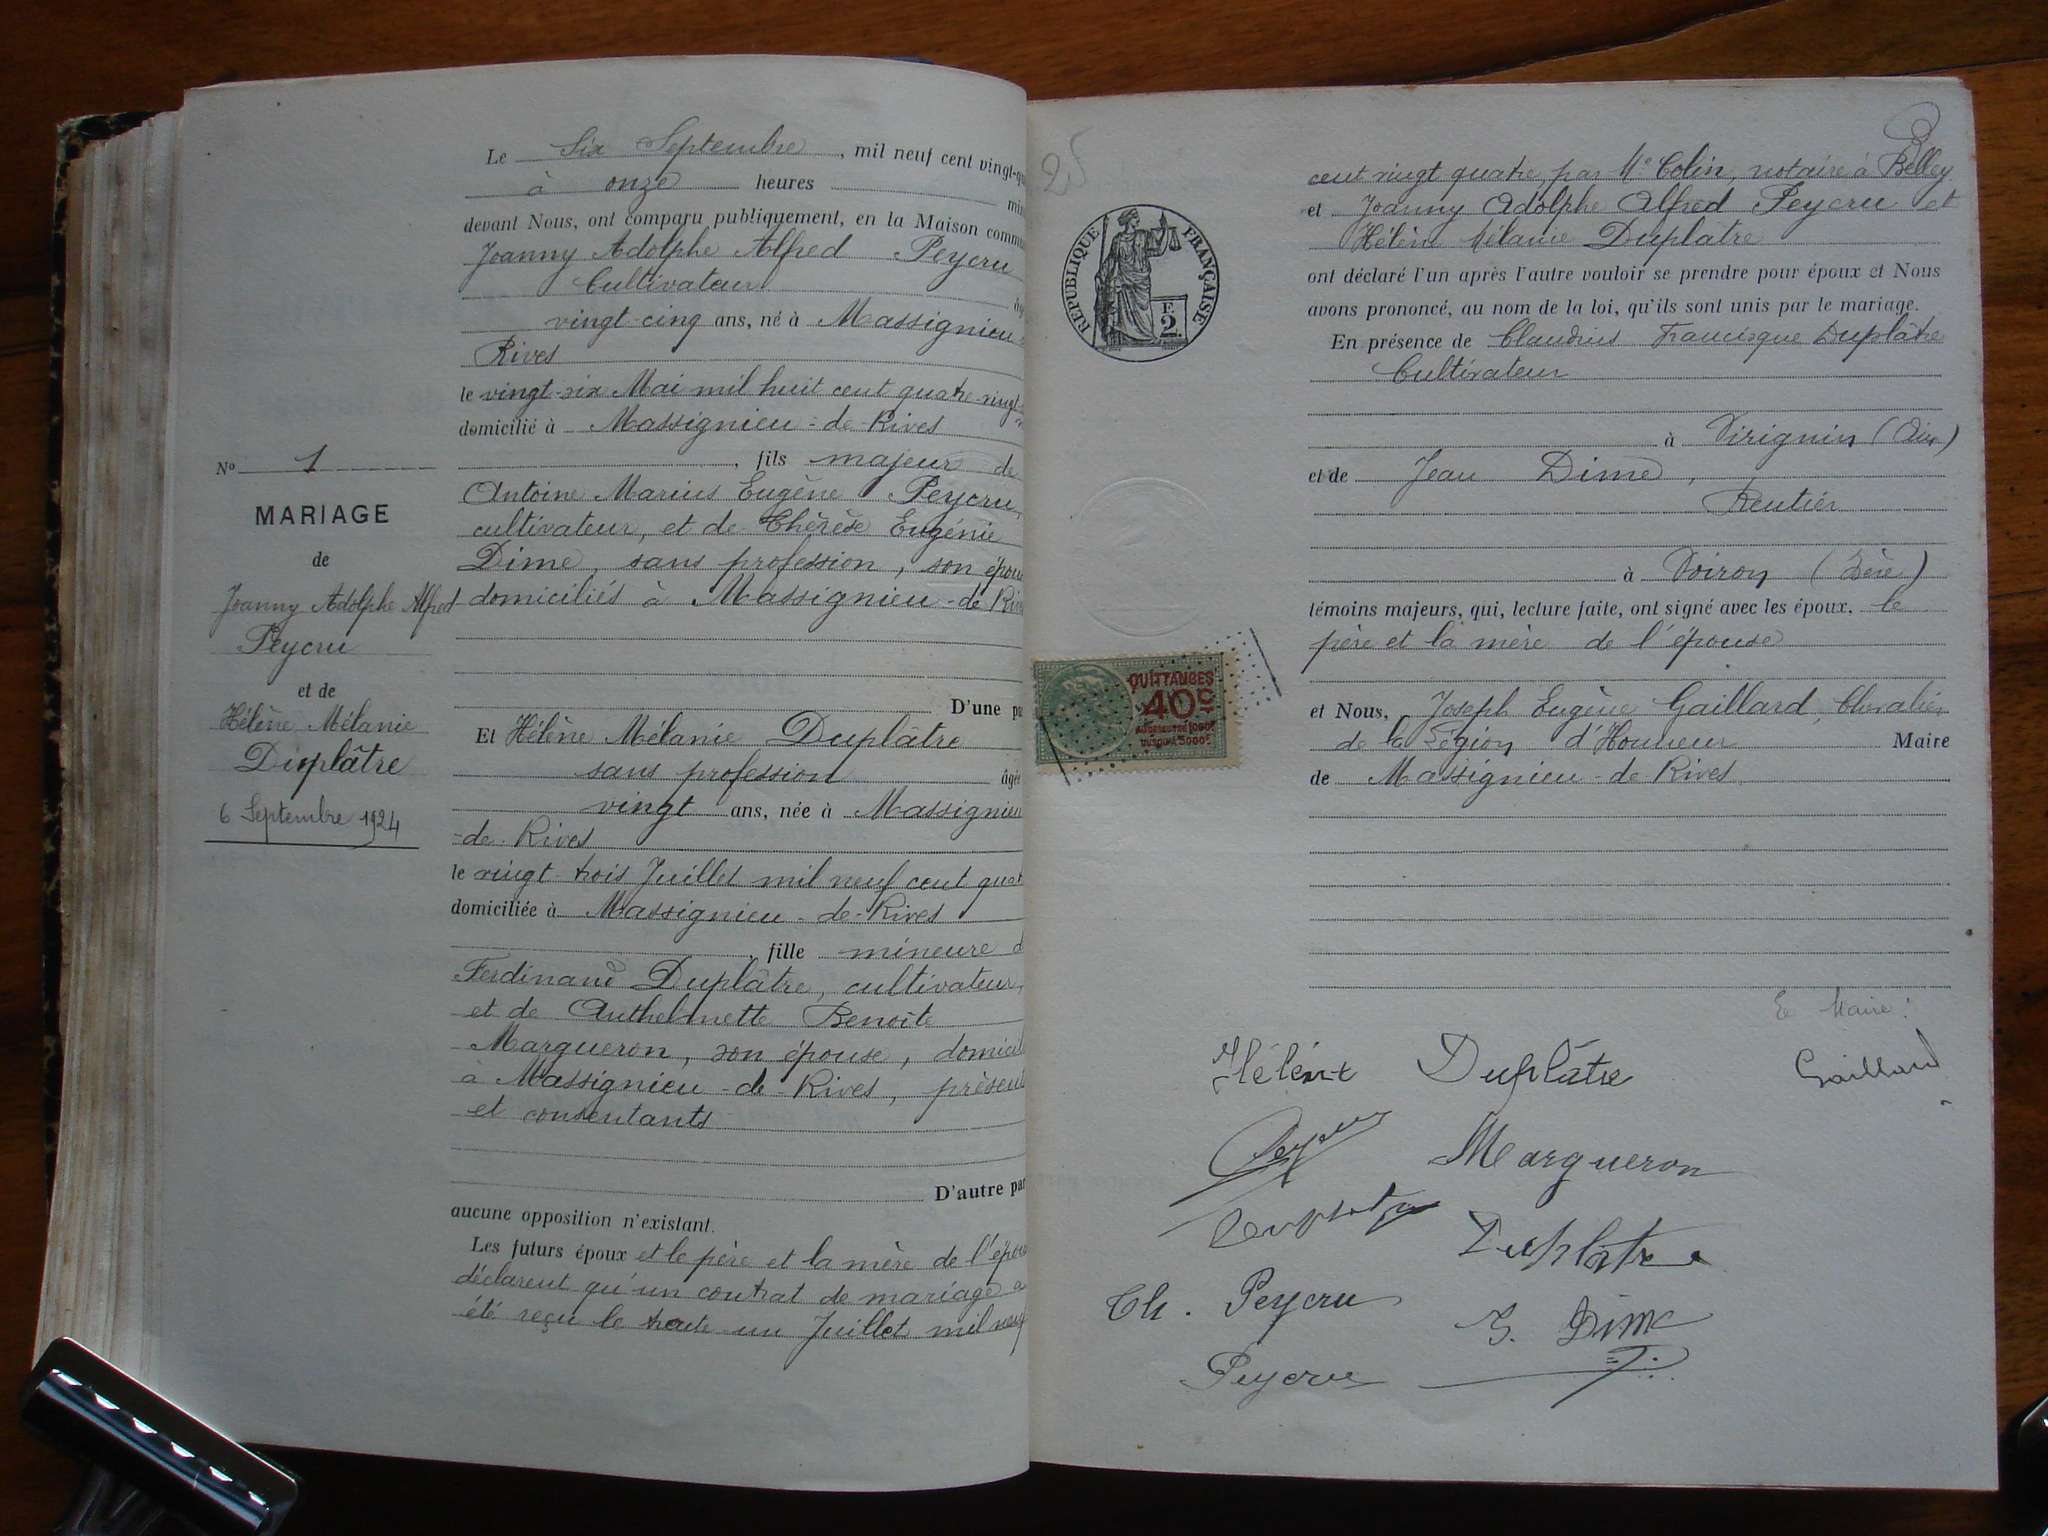 Le six Septembre, mil neuf cent vingt-qu
à onze heures min
devant Nous, ont comparu publiquement, en la Maison commu
Joanny Adolphe Alfred Peycru
Cultivateur âg
vingt-cinq ans, né à Massignieu-
Rives
le vingt-six Mai mil huit cent quatre-vingt-
domicilié à Massignieu-de-Rives
, fils majeur de
Antoine Marius Eugène Peycru,
cultivateur, et de Thérèse Eugénie
Dime, sans profession, son épou
domiciliés à Massignieu-de-Riv
D'une pa
Et Hélène Mélanie Duplâtre
sans profession âgé
vingt ans, née à Massignieu
-de-Rives
le vingt-trois Juillet mil neuf cent quat
domiciliée à Massignieu-de-Rives
, fille mineure d
Ferdinand Duplâtre, cultivateur,
et de Anthelmette Benoîte
Margueron, son épouse, domicil
à Massignieu-de-Rives, présent
et consentants
D'autre par
aucune opposition n'existant.
Les futurs époux et le père et la mère de l'épou
déclarent qu'un contrat de mariage a
été reçu le trente-un Juillet mil neuf
No 1
MARIAGE
de
Joanny Adolphe Alfred
Peycru
et de
Hélène Mélanie
Duplâtre
6 Septembre 1924
25
RÉPUBLIQUE FRANÇAISE
F.
2
QUITTANCES
40c
AU DESSUS DE 1000F
JUSQU'A 3000F
cent vingt quatre par Me Colin, notaire à Belley
et Joanny Adolphe Alfred Peycru et
Hélène Mélanie Duplâtre
ont déclaré l'un après l'autre vouloir se prendre pour époux et Nous
avons prononcé, au nom de la loi, qu'ils sont unis par le mariage.
En présence de Claudius Francisque Duplâtre
Cultivateur
à Virignin (Ain)
et de Jean Dime,
Rentier
à Voiron (Isère)
témoins majeurs, qui, lecture faite, ont signé avec les époux, le
père et la mère de l'épouse
et Nous, Joseph Eugène Gaillard, Chevalier
de la Légion d'Honneur Maire
de Massignieu-de-Rives
Le Maire:
Hélène Duplâtre Gaillard
Peycru Margueron
Duplatre Duplatre
Th. Peycru J. Dime
Peycru